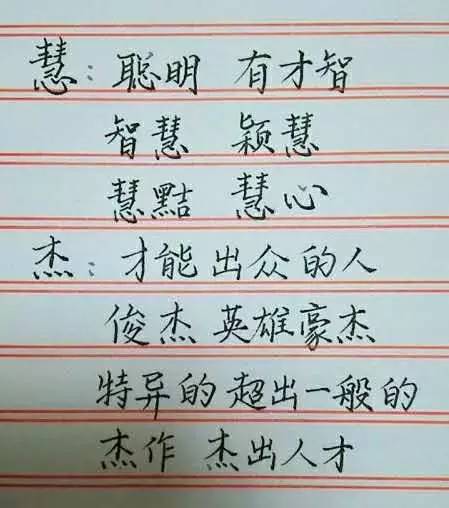 慧：聪明 有才智
智慧 颖慧
慧黠 慧心
杰：才能出众的人
俊杰 英雄豪杰
特异的 超出一般的
杰作 杰出人才